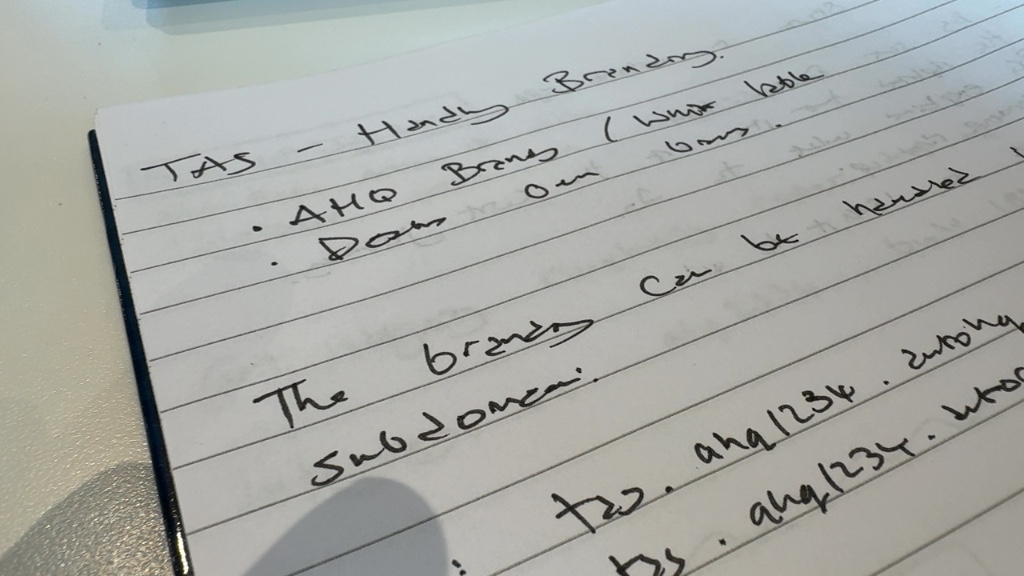 TAS - Handling Branding.
· AHQ Branding (White lable
· Dealers Own brands.
The branding can be handled
subdomain.
tas. ahq1234. autohq
tas. ahq1234.